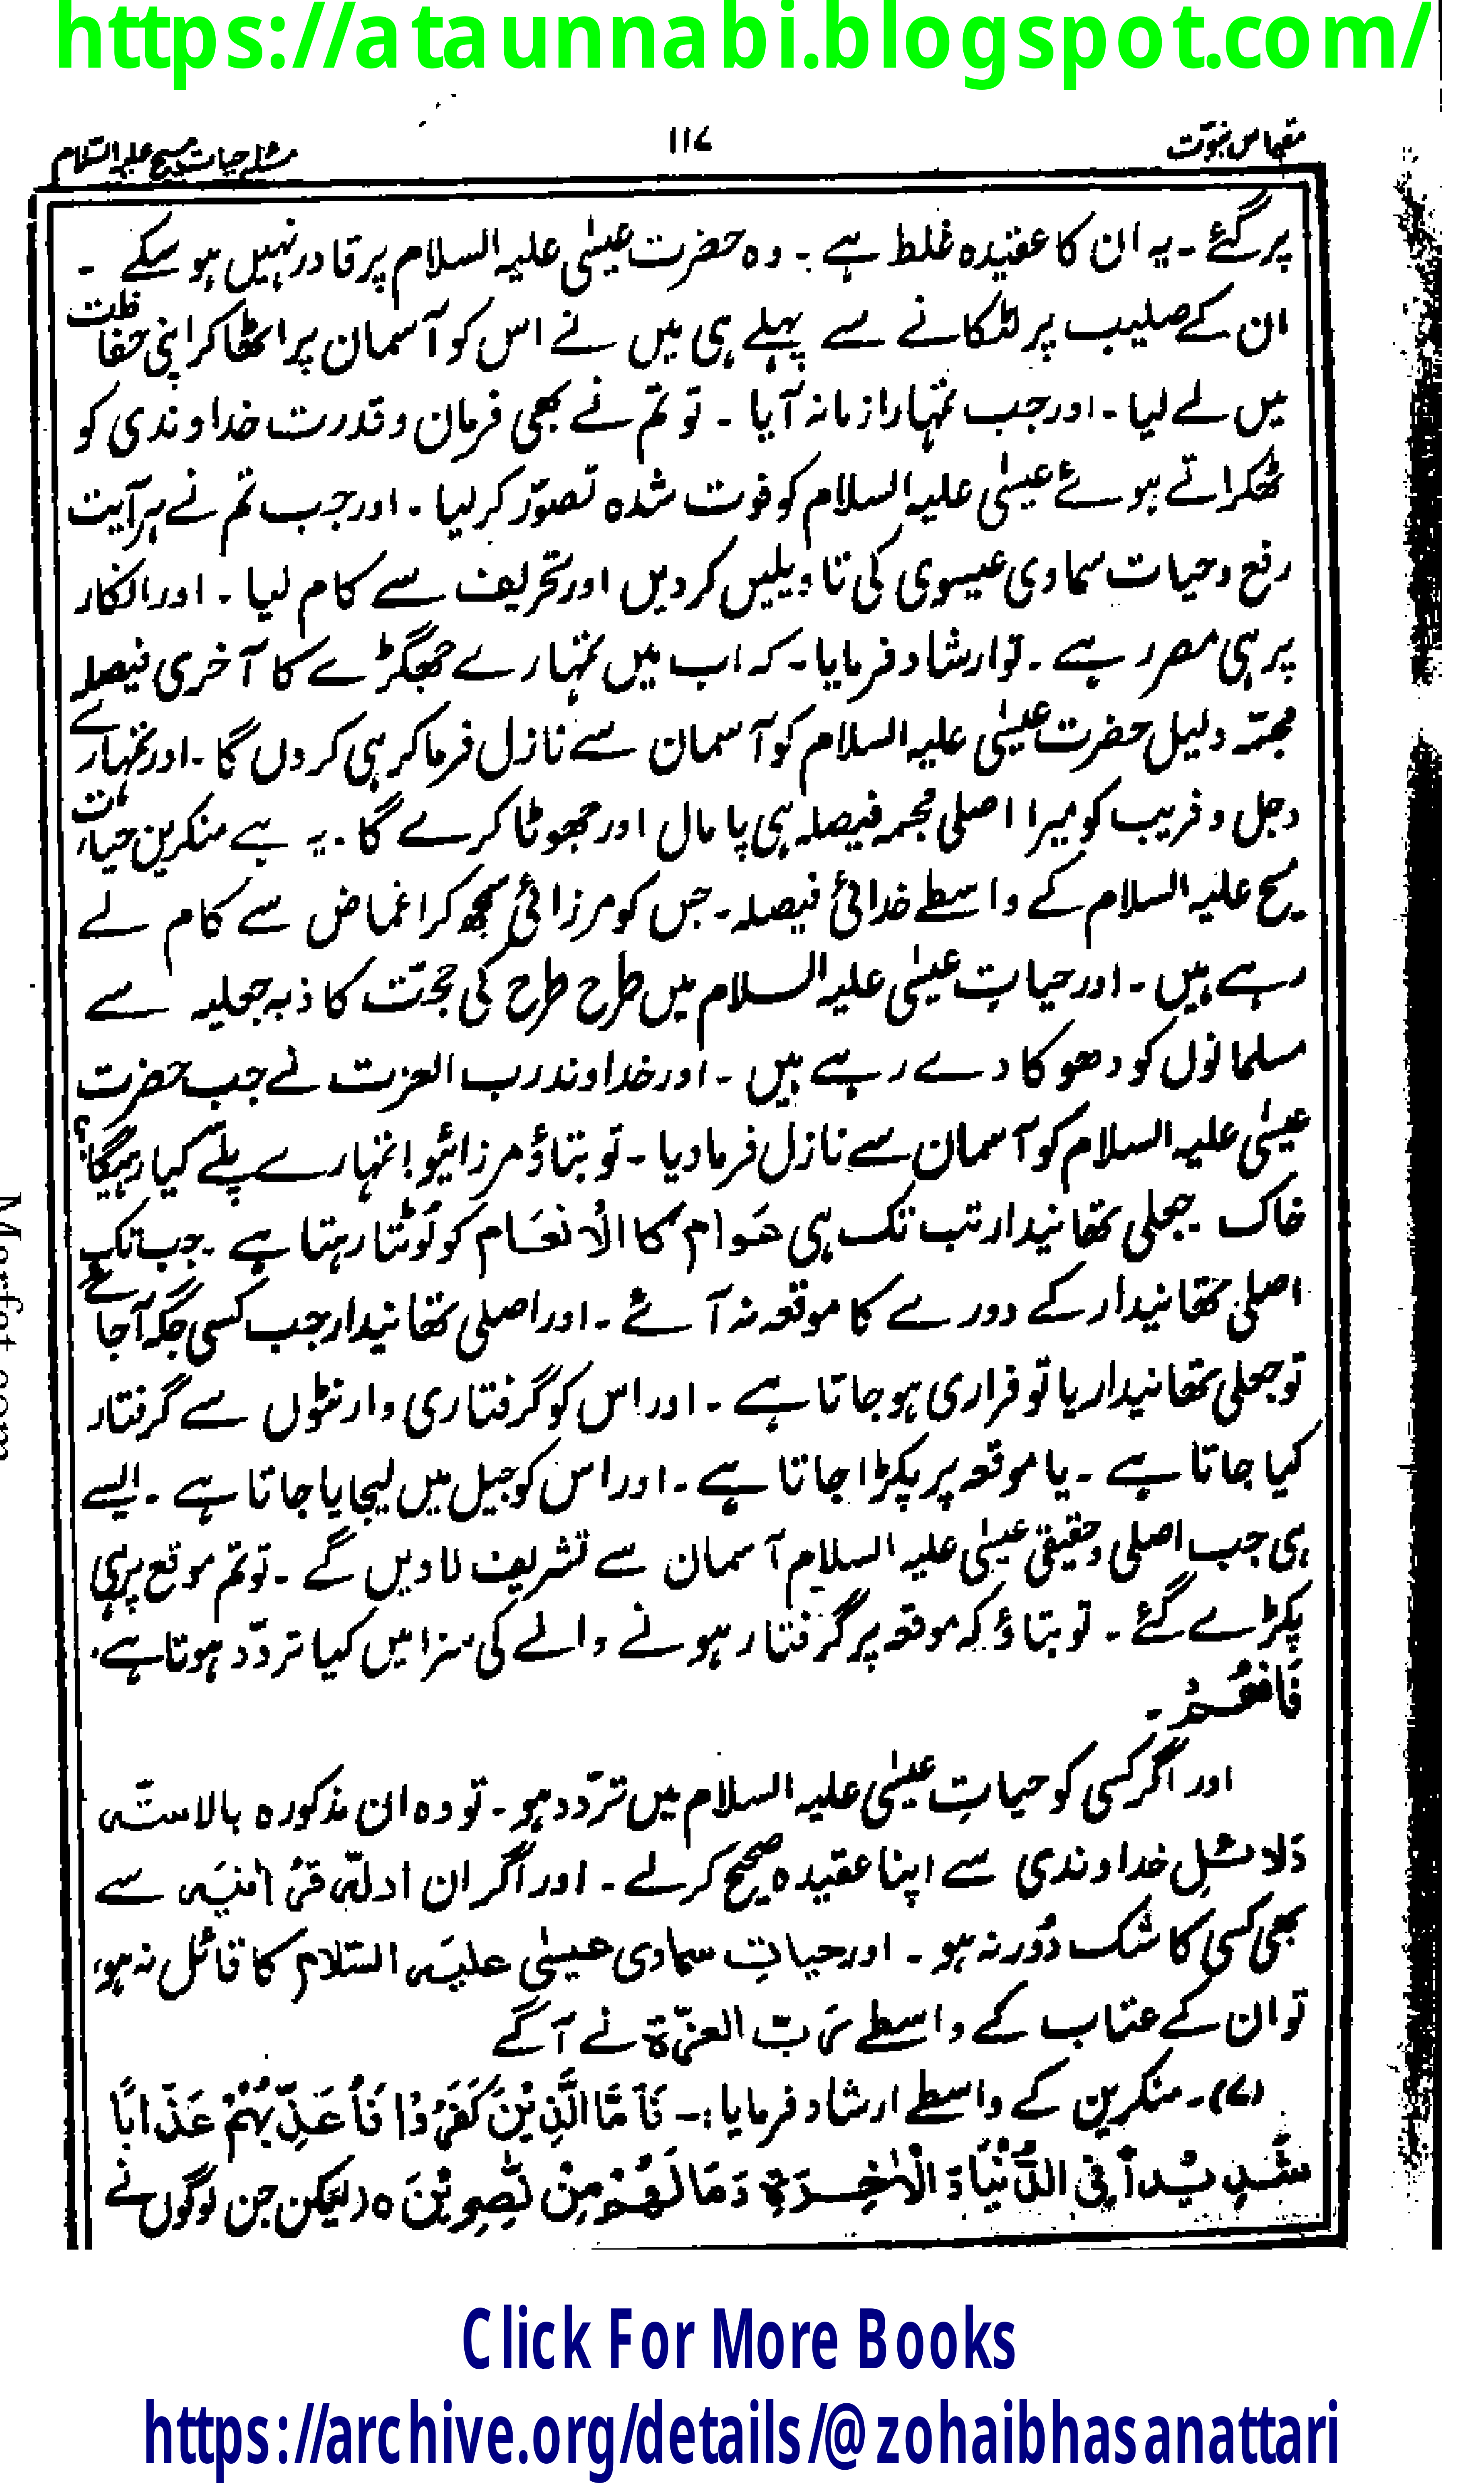 https://ataunnabi.blogspot.com/
مقیاس نبوّت
۱۱۷
مسئلہ حیات مسیح علیہ السّلام
پر گئے ۔ یہ ان کا عقیدہ غلط ہے ۔ وہ حضرت عیسٰی علیہ السلام پر قادر نہیں ہو سکے ۔
ان کے صلیب پر لٹکانے سے پہلے ہی میں نے اس کو آسمان پر اٹھا کر اپنی حفاظت
میں لے لیا ۔ اور جب تمہارا زمانہ آیا ۔ تو تم نے بھی فرمان و قدرت خداوندی کو
ٹھکراتے ہوئے عیسٰی علیہ السلام کو فوت شدہ تصوّر کر لیا ۔ اور جب تم نے ہر آیت
رفع و حیات سماوی عیسوی کی تاویلیں کر دیں اور تحریف سے کام لیا ۔ اور انکار
پر ہی مصر رہے ۔ تو ارشاد فرمایا ۔ کہ اب میں تمہارے جھگڑے کا آخری فیصلہ
مجسّمہ دلیل حضرت عیسٰی علیہ السلام کو آسمان سے نازل فرما کر ہی کر دں گا ۔ اور تمہارے
دجل و فریب کو میرا اصلی مجسمہ فیصلہ ہی پامال اور جھوٹا کرے گا ۔ یہ ہے منکرین حیات
مسیح علیہ السلام کے واسطے خدائی فیصلہ ۔ جس کو مرزائی سمجھ کر اغماض سے کام لے
رہے ہیں ۔ اور حیاتِ عیسٰی علیہ السلام میں طرح طرح کی حجّت کاذبہ جعلیہ سے
مسلمانوں کو دھوکا دے رہے ہیں ۔ اور خداوند رب العزت نے جب حضرت
عیسٰی علیہ السلام کو آسمان سے نازل فرما دیا ۔ تو بتاؤ مرزائیو! تمہارے پلّے کیا رہیگا؟
خاک ۔ جعلی تھانیدار تب تک ہی عَوام کا الْانعَام کو لُوٹتا رہتا ہے ۔ جب تک
اصلی تھانیدار کے دورے کا موقعہ نہ آئے ۔ اور اصلی تھانیدار جب کسی جگہ آجائے
تو جعلی تھانیدار یا تو فراری ہو جاتا ہے ۔ اور اس کو گرفتاری وارنٹوں سے گرفتار
کیا جاتا ہے ۔ یا موقعہ پر پکڑا جاتا ہے ۔ اور اس کو جیل میں لیجایا جاتا ہے ۔ ایسے
ہی جب اصلی و حقیقی عیسٰی علیہ السلام آسمان سے تشریف لاویں گے ۔ تو تم موقع پر ہی
پکڑے گئے ۔ تو بتاؤ کہ موقعہ پر گرفتار ہونے والے کی سزا میں کیا تردّد ہوتا ہے ۔
فَافْهُمْ ۔
اور اگر کسی کو حیاتِ عیسٰی علیہ السلام میں تردّد ہو ۔ تو وہ ان مذکورہ بالا ستّہ
دَلائلِ خداوندی سے اپنا عقیدہ صحیح کر لے ۔ اور اگر ان ادلّہ قرُاٰنیَہ سے
بھی کسی کا شک دُور نہ ہو ۔ اور حیاتِ سماوی عیسٰی علیہ السّلام کا قائل نہ ہو ،
تو ان کے عتاب کے واسطے رَبّ العزّۃ نے آگے
(۷) ۔ منکرین کے واسطے ارشاد فرمایا :۔ فَاَمَّا الَّذِیْنَ کَفَرُوْا فَاُعَذِّبُهُمْ عَذَابًا
شَدِیْدًا فِی الدُّنْیَا وَ الْاٰخِرَةِ وَمَا لَهُمْ مِنْ نّٰصِرِیْنَ ہ (لیکن جن لوگوں نے
Marfat.com
Click For More Books
https://archive.org/details/@zohaibhasanattari